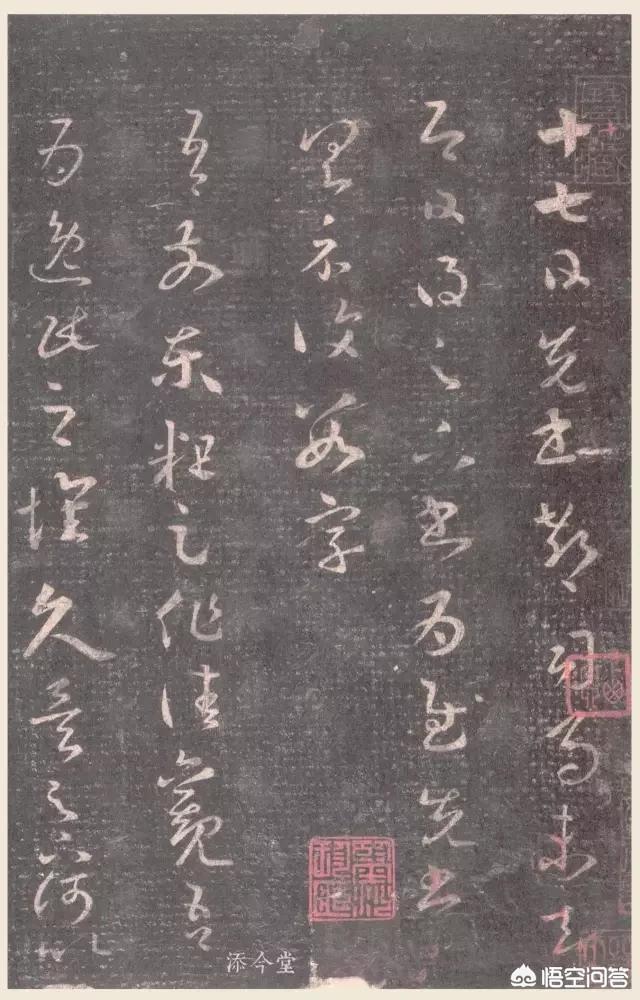 十七日先書郗司馬未去
即日得足下書為慰先書
以具示復數字
吾前東粗足作佳觀吾
為逸民之懷久矣足下何以
添今堂
悟空问答